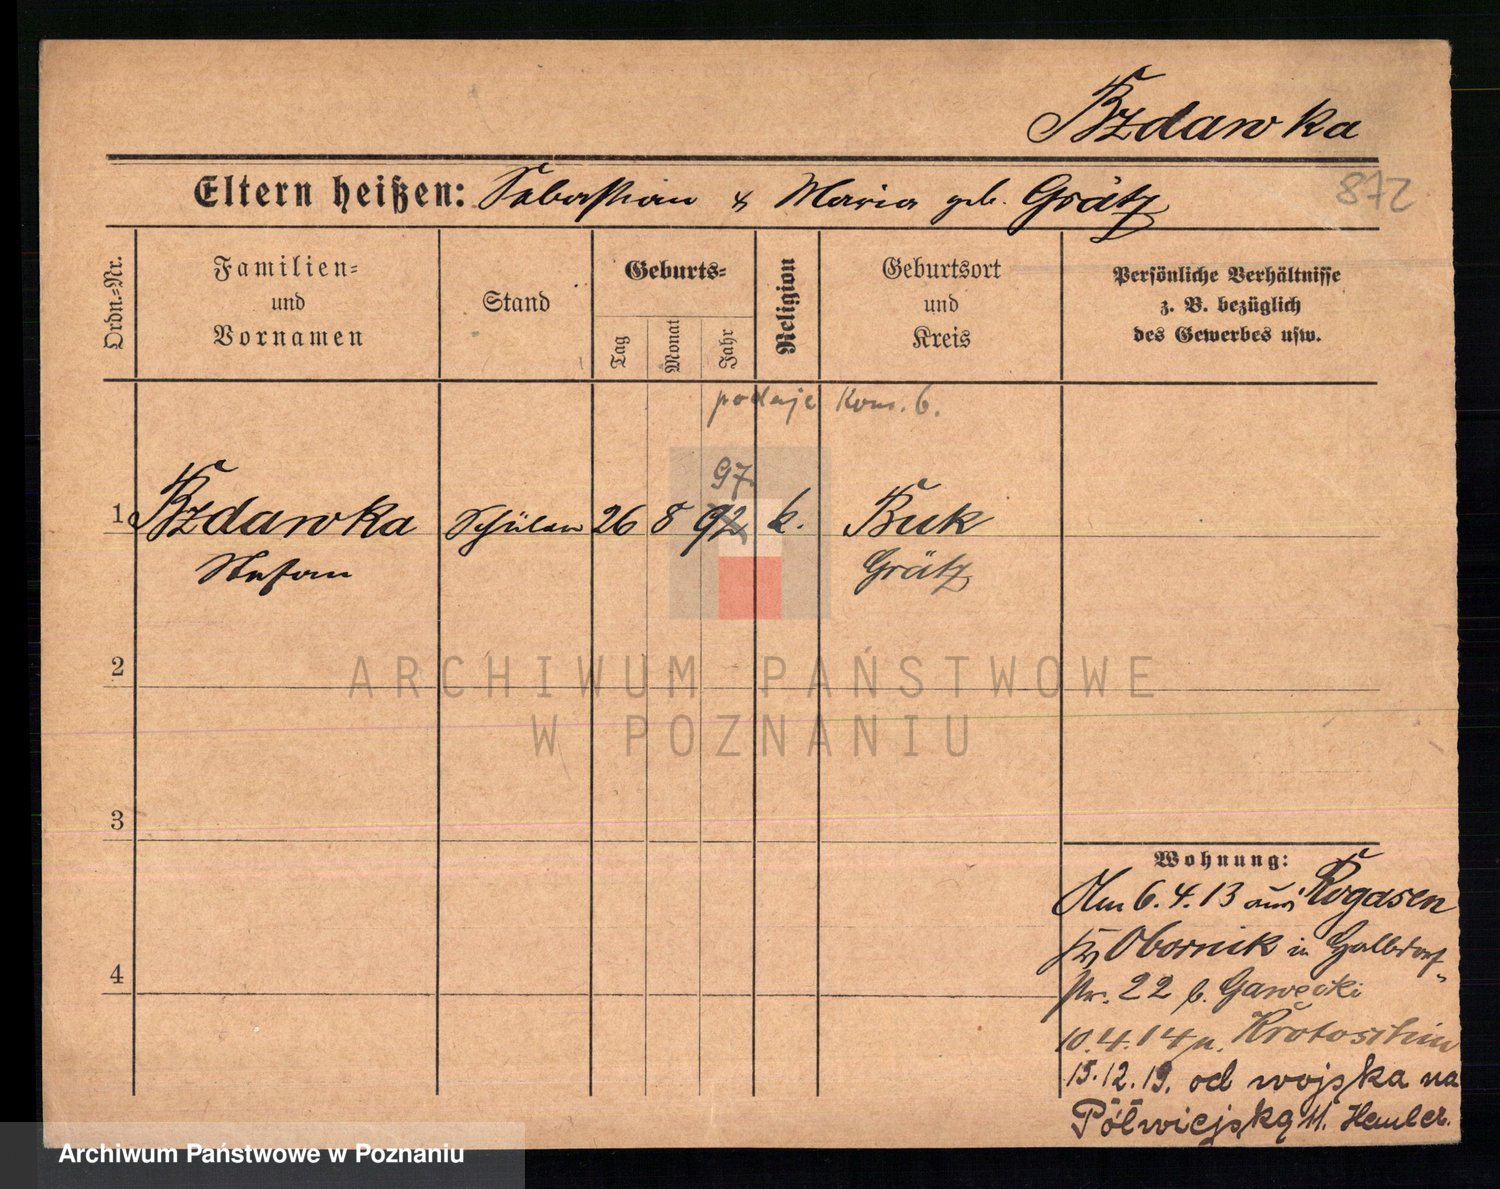 Bzdawka
872
Eltern heißen: Sebastian & Maria geb. Grätz
Ordn.-Nr.
Familien-
und
Vornamen
Stand
Geburts-
Tag
Monat
Jahr
Religion
Geburtsort
und
Kreis
Persönliche Verhältnisse
z. B. bezüglich
des Gewerbes usw.
podaje Kom. 6.
97
1 Bzdawka Schüler 26 8 92 k. Buk
Stefan Grätz
2
3
4
Wohnung:
Am 6.4.13 aus Rogasen
Kr Obornik in Halbdorf-
str. 22 b. Gawęcki
10.4.14 n. Krotoschin
15.12.19. od wojska na
Półwiejską 11. Hemler.
ARCHIWUM PAŃSTWOWE
W POZNANIU
Archiwum Państwowe w Poznaniu